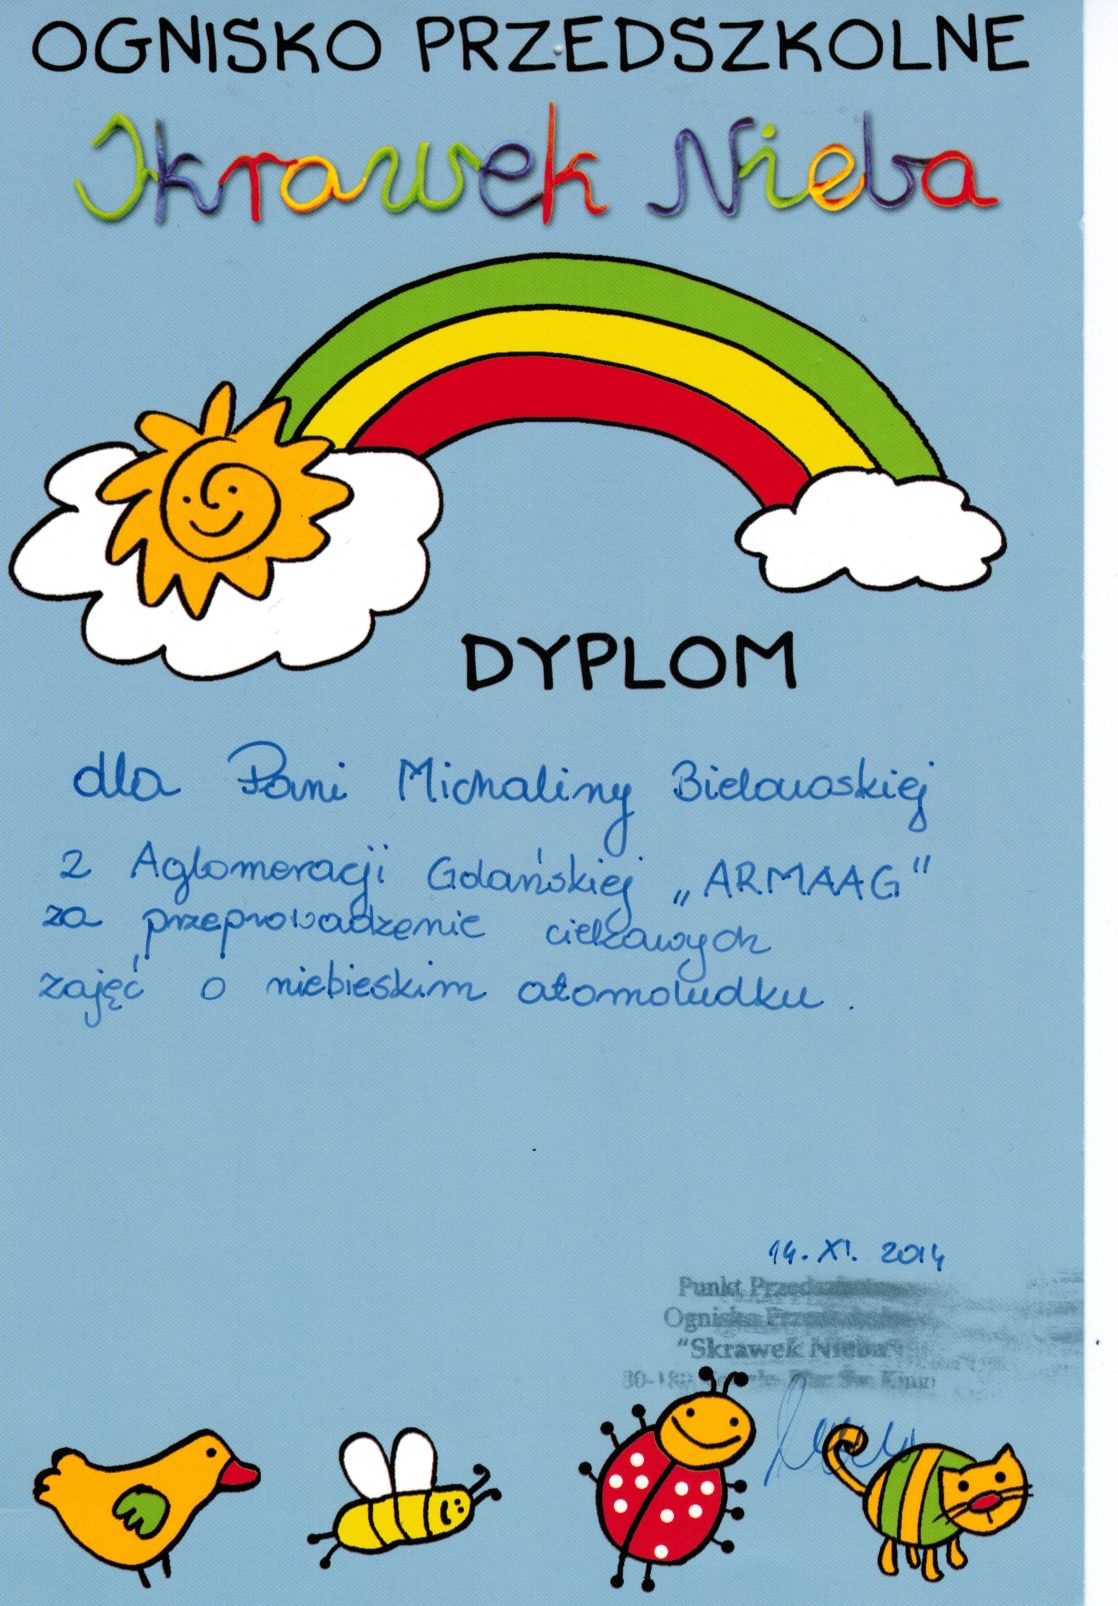 OGNISKO PRZEDSZKOLNE
Skrawek Nieba
DYPLOM
dla Pani Michaliny Bielawskiej
z Aglomeracji Gdańskiej „ARMAAG"
za przeprowadzenie ciekawych
zajęć o niebieskim atomoludku.
14. XI. 2014
Punkt
"Skrawek Nieba"